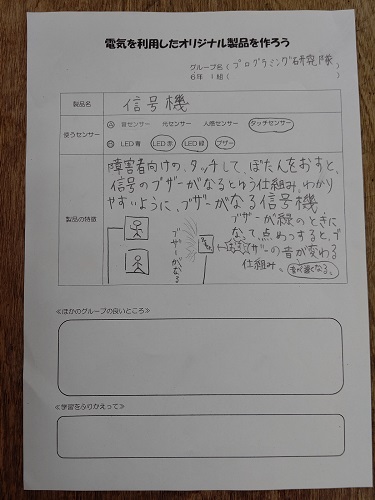 電気を利用したオリジナル製品を作ろう
グループ名(プログラミング研究隊)
6年 1組( )
製品名 信号機
使うセンサー
入 音センサー 光センサー 人感センサー タッチセンサー
出 LED青 LED赤 LED緑 ブザー
製品の特徴
障害者向けの、タッチして、ぼたんをおすと、
信号のブザーがなるとゆう仕組み、わかり
やすいように、ブザーがなる信号機、
ブザーが緑のときに
なって、点めつすると、ブ
ザーの音が変わる
仕組み。
音が速くなる。
ブザーがなる
≪ほかのグループの良いところ≫
≪学習をふりかえって≫